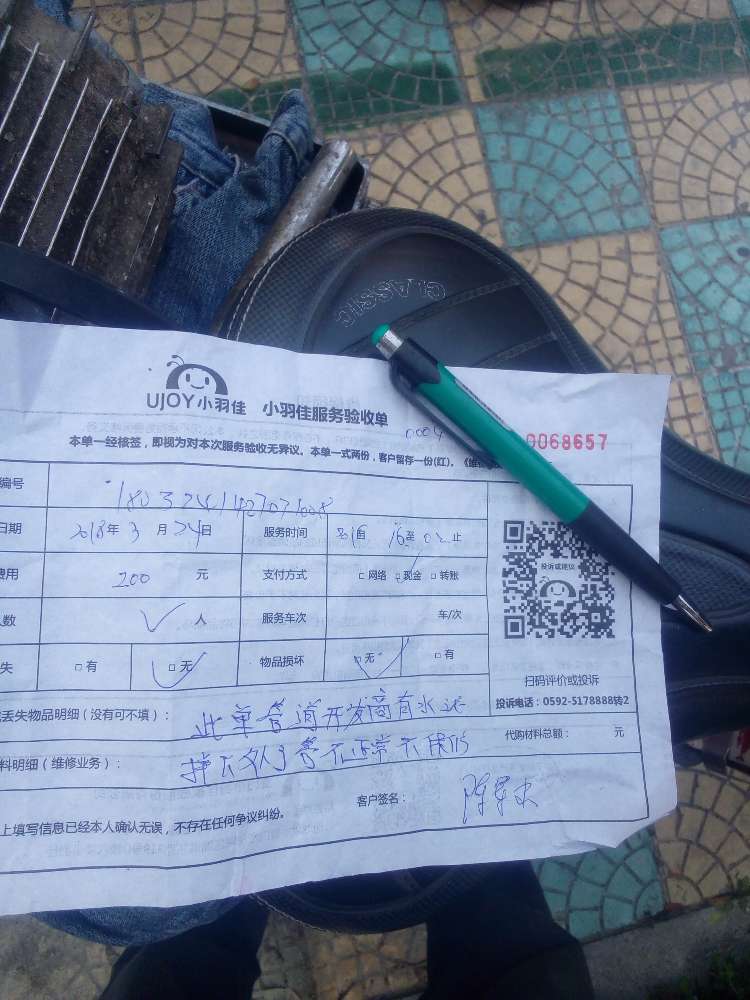 CLASSIC
UJOY小羽佳 小羽佳服务验收单
0068657
本单一经核签，即视为对本次服务验收无异议。本单一式两份，客户留存一份(红)。
编号
日期 2018年 3 月 24日 服务时间 自 至 止
费用 200 元 支付方式 □网络 □现金 □转账
人数 人 服务车次 车/次
失 □有 □无 物品损坏 □无 □有
投诉或建议
扫码评价或投诉
投诉电话：0592-5178888转2
丢失物品明细（没有可不填）： 此单管道开发商有水泥
料明细（维修业务）： 不正常不保修
代购材料总额： 元
客户签名：
上填写信息已经本人确认无误，不存在任何争议纠纷。